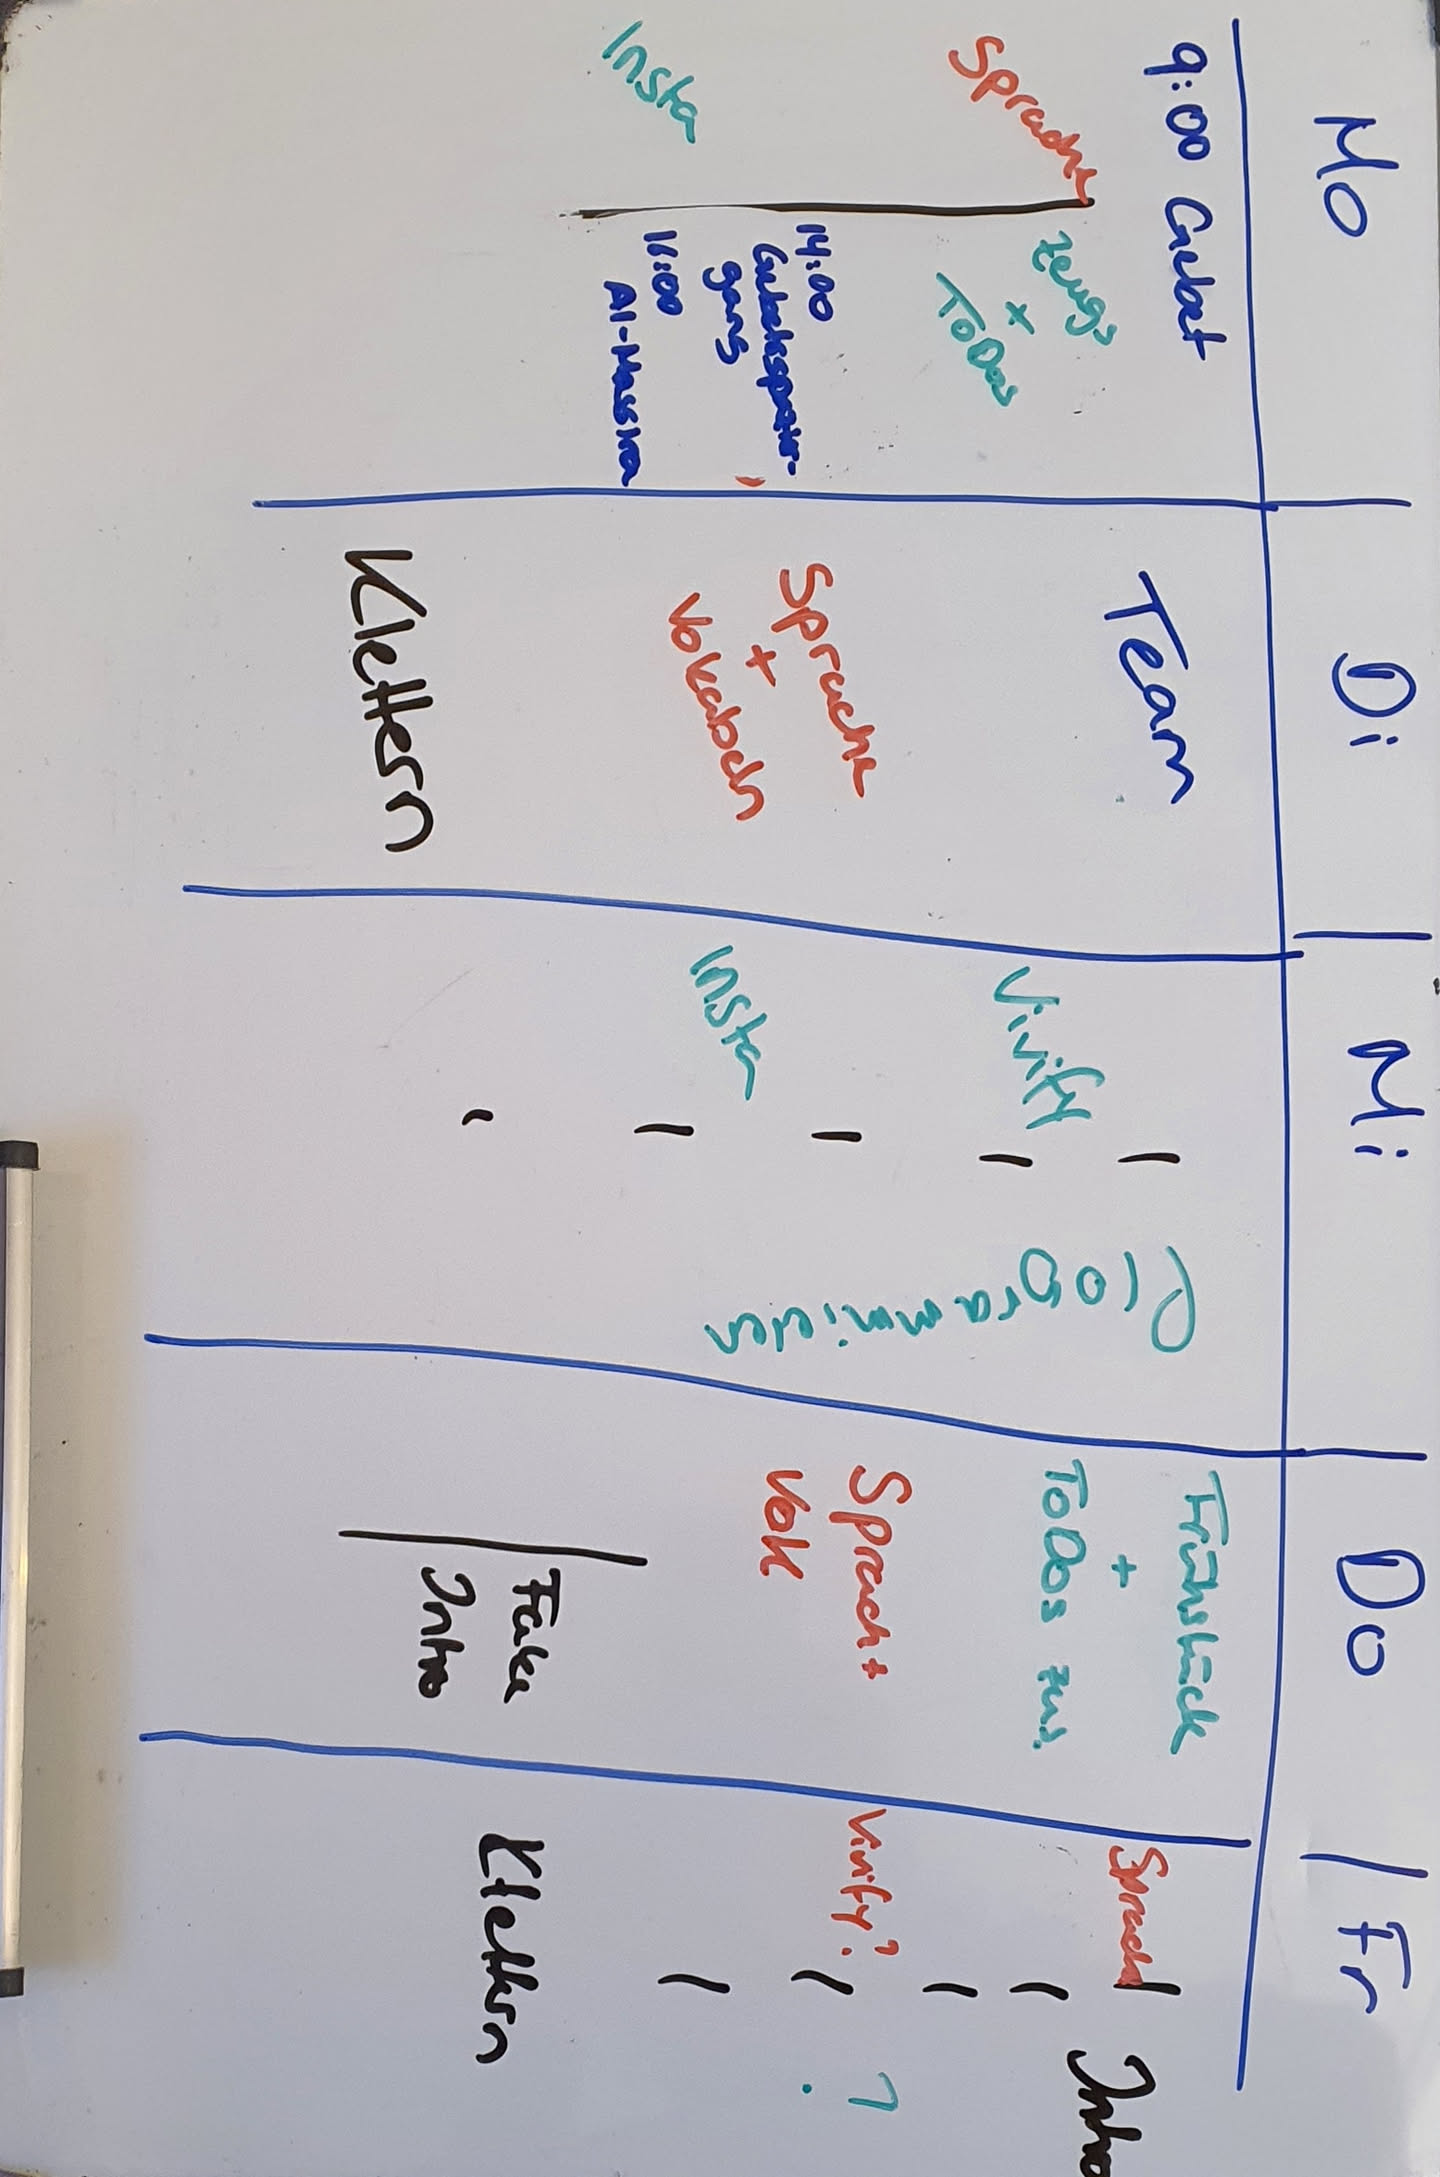 Mo
Di
Mi
Do
Fr
9:00 Gebet
Sprache
Zeugs
+
ToDos
14:00
Gebetsspazier-
gang
Insta
16:00
Al-Massira
Team
Sprache
+
Vokabeln
Klettern
Vivify
Insta
Programmieren
Frühstück
+
ToDos zus.
Sprach +
Vok
Fake
Intro
Sprach
Intro
Vivify?
?
Klettern